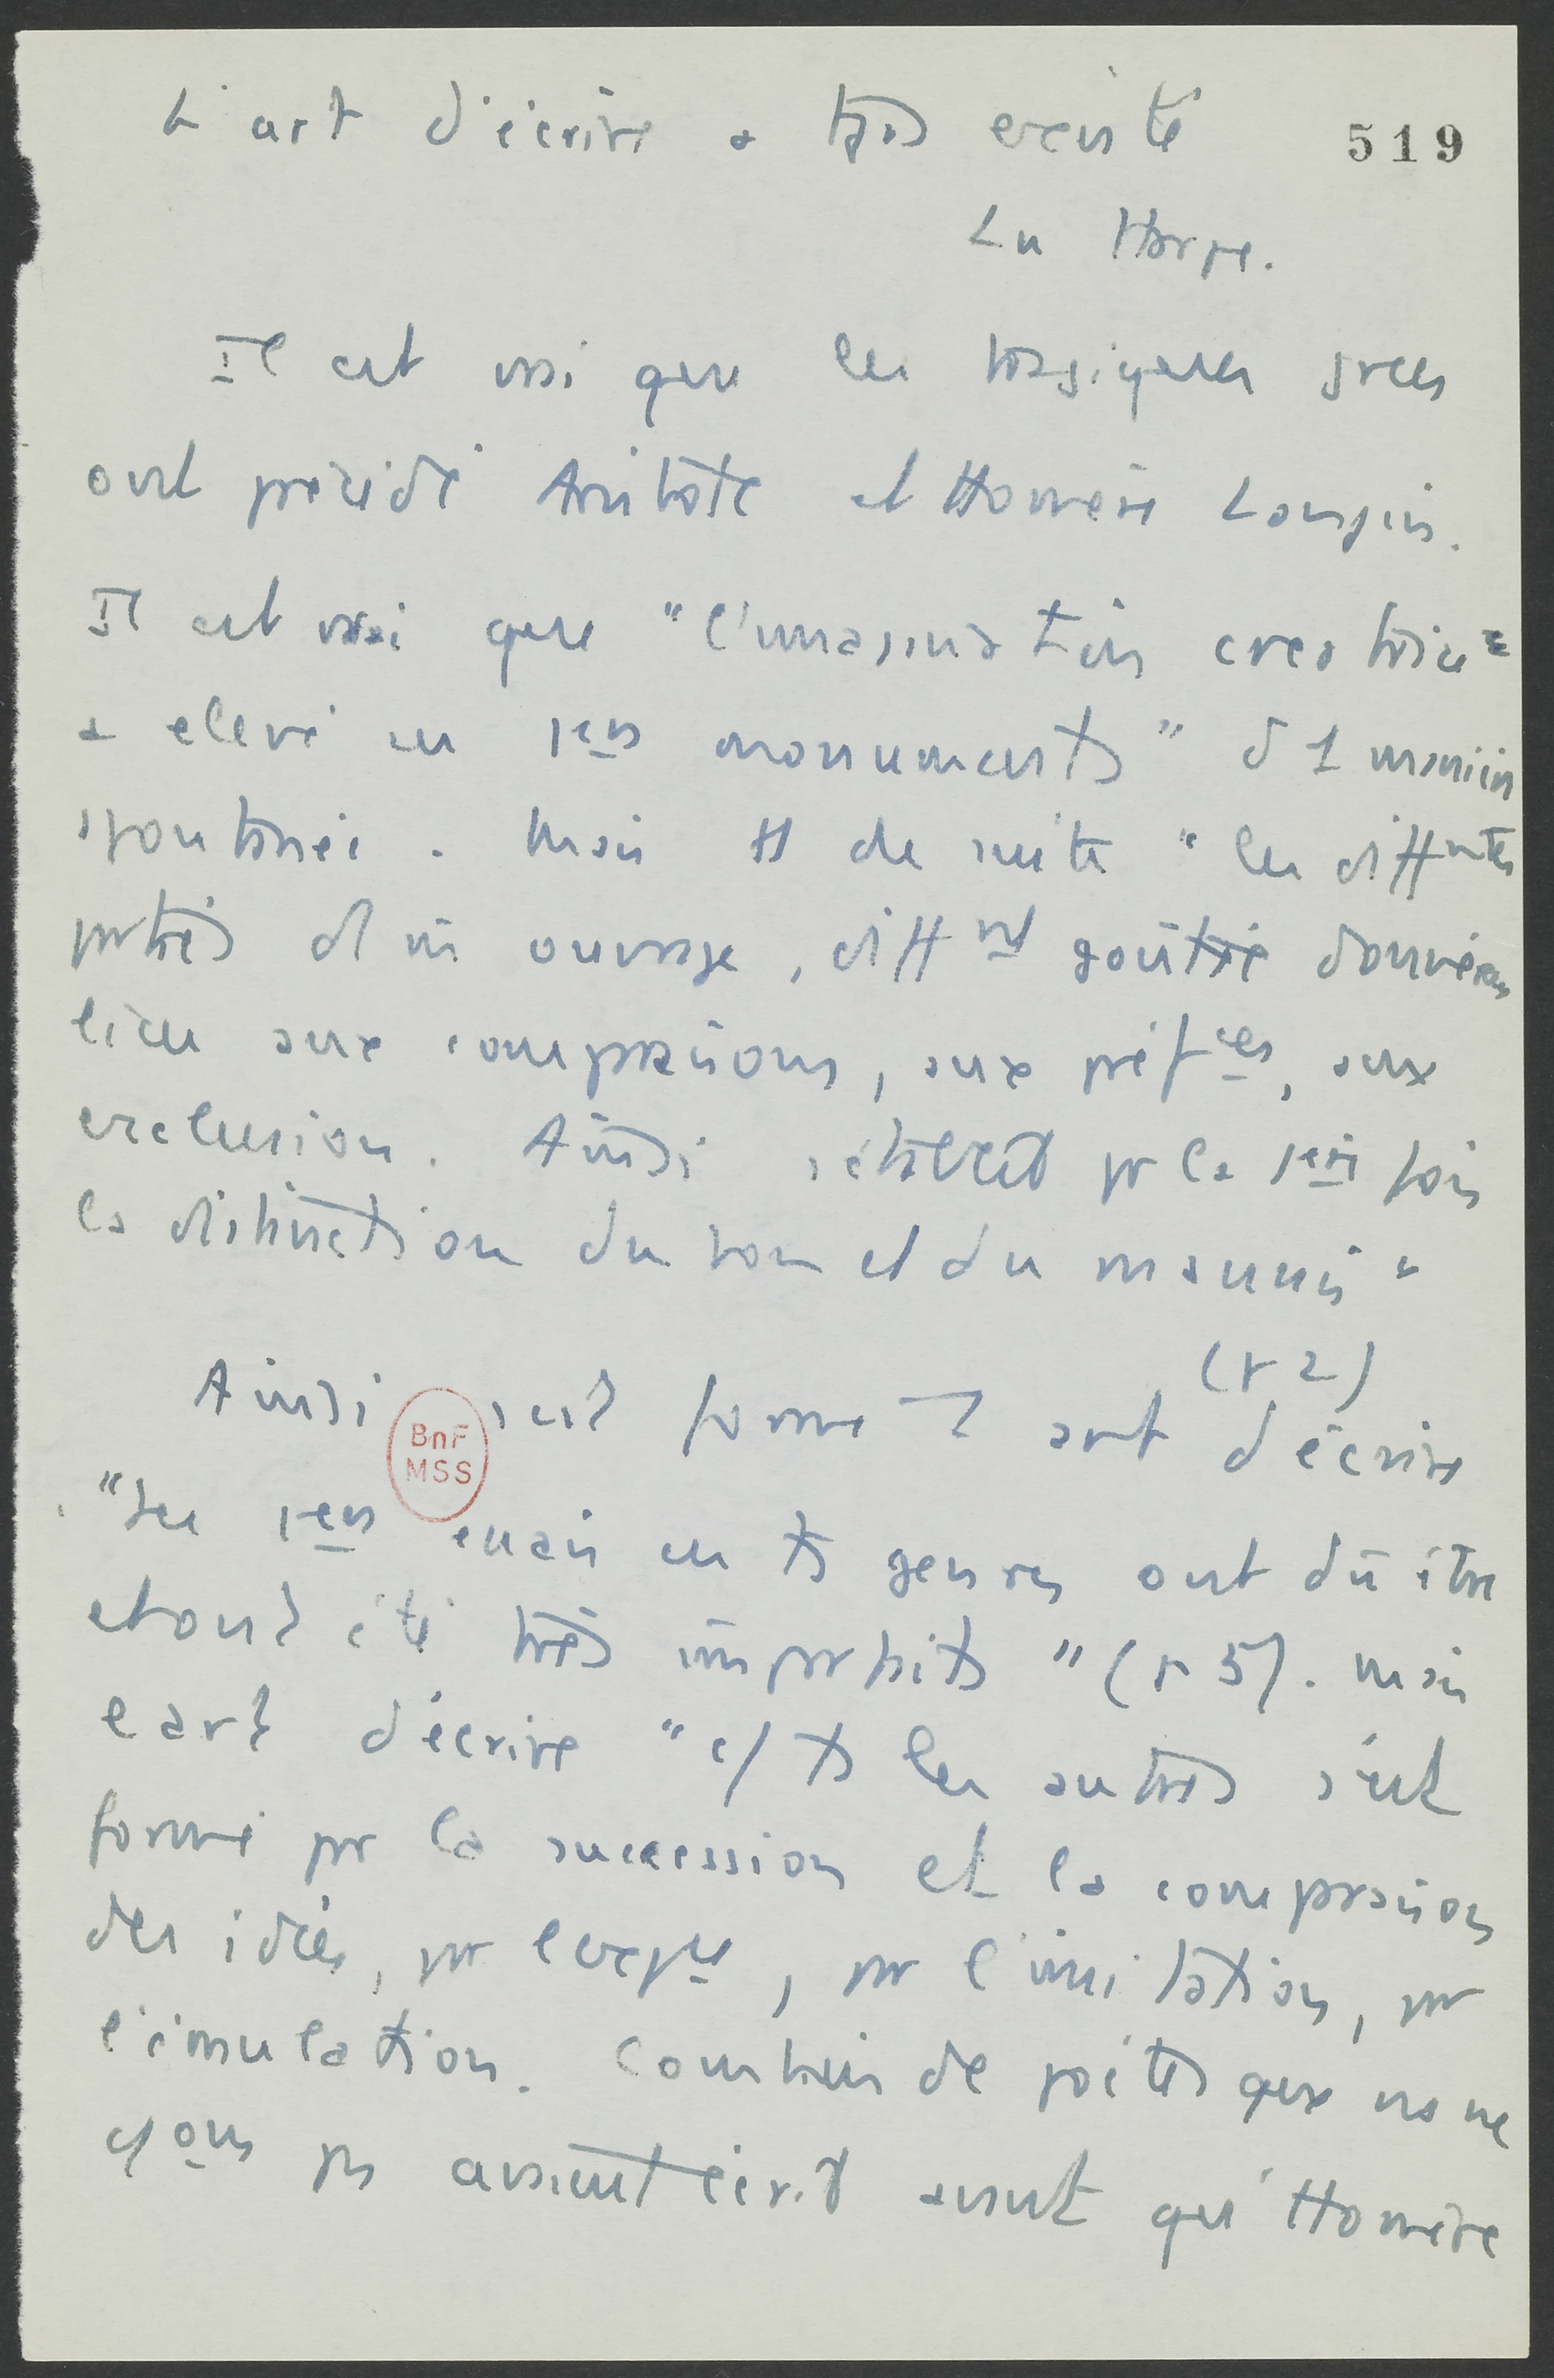 L'art d'écrire a tjrs existé
519
La Harpe.
Il est vrai que les tragiques grecs
ont précédé Aristote et Homère Longin.
Il est vrai que "l'imagination créatrice"
a élevé ces 1ers monuments" d 1 manière
spontanée. Mais tt de suite "les diffntes
parties d'un ouvrage, diffnt goûtée donnèrent
lieu aux comparaisons, aux préfces, aux
exclusion. Ainsi s'établit pr la 1ère fois
la distinction du bon et du mauvais"
(p 2)
Ainsi s'est formé l'art d'écrire
BnF
MSS
"Les 1ers essais en ts genres ont dû être
et ont été très imparfaits" (p 5). Mais
l'art d'écrire "c/ ts les autres s'est
formé par la succession et la comparaison
des idées, par l'exple, par l'imitation, par
l'émulation. Combien de poètes que ns ne
c/ons pas avaient écrit avant qu'Homère